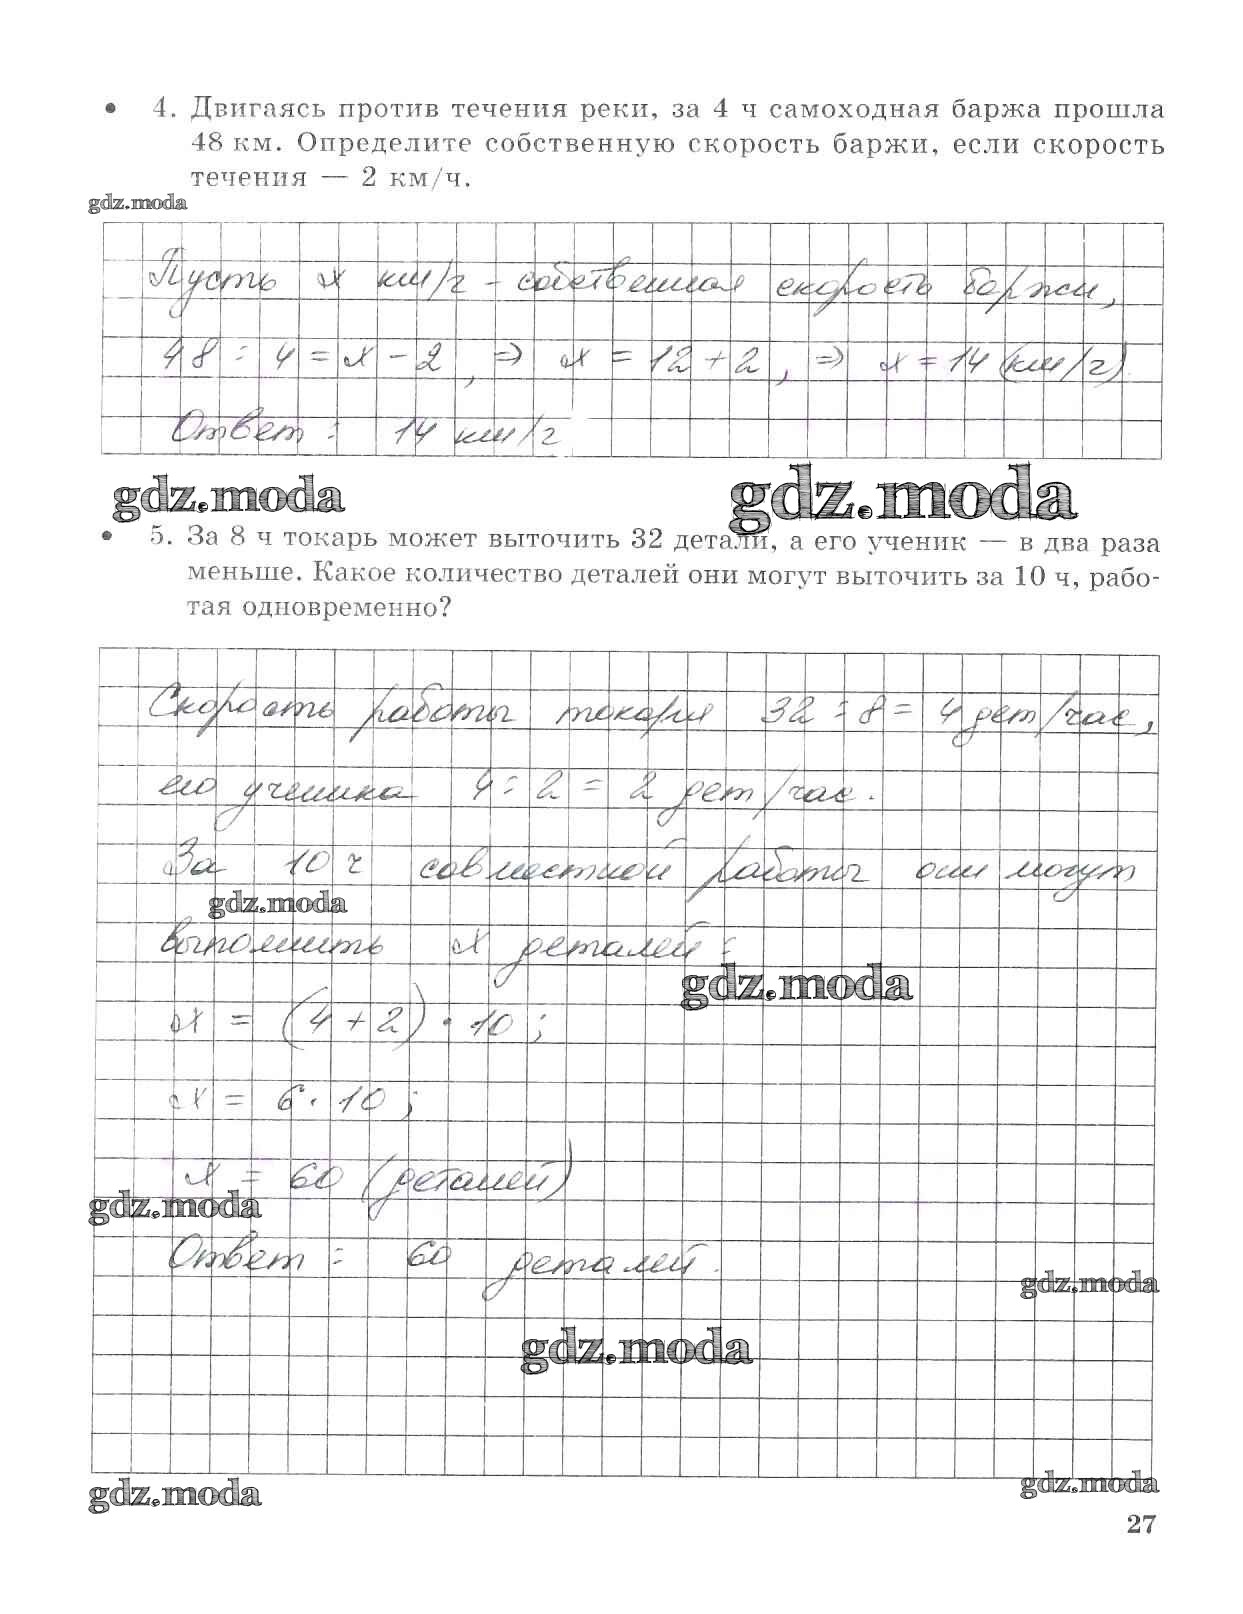 • 4. Двигаясь против течения реки, за 4 ч самоходная баржа прошла
48 км. Определите собственную скорость баржи, если скорость
течения — 2 км/ч.
gdz.moda
Пусть x км/ч - собственная скорость баржи,
48 : 4 = x - 2, ⇒ x = 12 + 2, ⇒ x = 14 (км/ч).
Ответ : 14 км/ч
gdz.moda gdz.moda
• 5. За 8 ч токарь может выточить 32 детали, а его ученик — в два раза
меньше. Какое количество деталей они могут выточить за 10 ч, рабо-
тая одновременно?
Скорость работы токаря 32 : 8 = 4 дет/час,
его ученика 4 : 2 = 2 дет/час.
За 10 ч совместной работы они могут
gdz.moda
выполнить x деталей :
gdz.moda
x = (4 + 2) · 10 ;
x = 6 · 10 ;
x = 60 (деталей)
gdz.moda
Ответ : 60 деталей.
gdz.moda
gdz.moda
gdz.moda gdz.moda
27